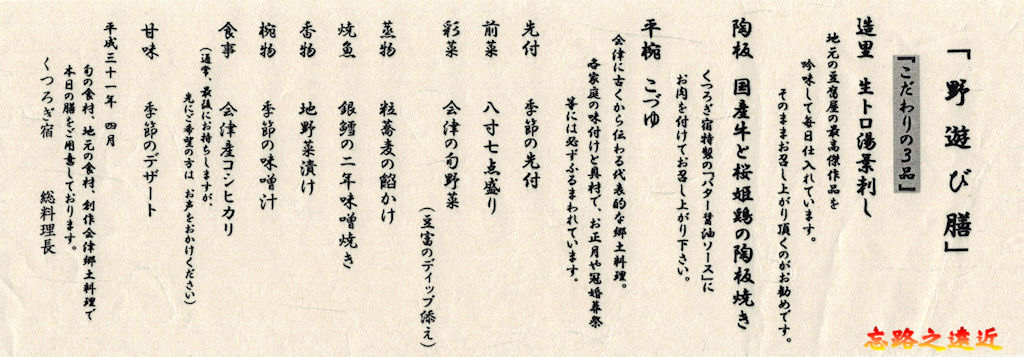 「野遊び膳」
『こだわりの3品』
造里 生トロ湯葉刺し
地元の豆腐屋の最高傑作品を
吟味して毎日仕入れています。
そのままお召し上がり頂くのがお勧めです。
陶板 国産牛と桜姫鶏の陶板焼き
くつろぎ宿特製の「バター醤油ソース」に
お肉を付けてお召し上がり下さい。
平椀 こづゆ
会津に古くから伝わる代表的な郷土料理。
各家庭の味付けと具材で、お正月や冠婚葬祭
等には必ずふるまわれています。
先付 季節の先付
前菜 八寸七点盛り
彩菜 会津の旬野菜
(豆富のディップ添え)
蒸物 粒蕎麦の餡かけ
焼魚 銀鱈の二年味噌焼き
香物 地野菜漬け
椀物 季節の味噌汁
食事 会津産コシヒカリ
(通常、最後にお持ちしますが、
先にご希望の方は お声をおかけください)
甘味 季節のデザート
平成三十一年 四月
旬の食材、地元の食材、創作会津郷土料理で
本日の膳をご用意しております。
くつろぎ宿 総料理長
忘路之遠近